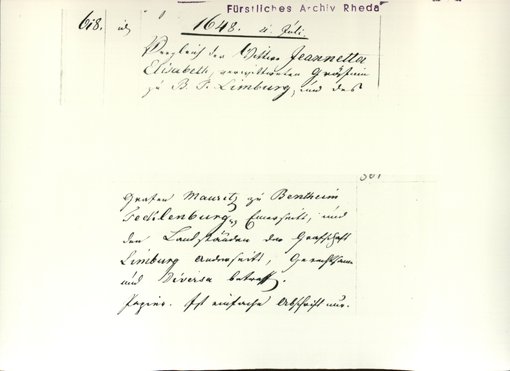 Fürstliches Archiv Rheda
618. 1648. 4. Juli.
Vergleich der Wittwe Jeannetta
Elisabeth, verwittweten Gräfinn
zu B. T. Limburg, und des
Grafen Mauritz zu Bentheim
Tecklenburg, Einerseits, und
den Landständen der Grafschaft
Limburg Anderseits, Gerechtsame
und Diversa betreff.
Papier. Ist einfache Abschrift nur.